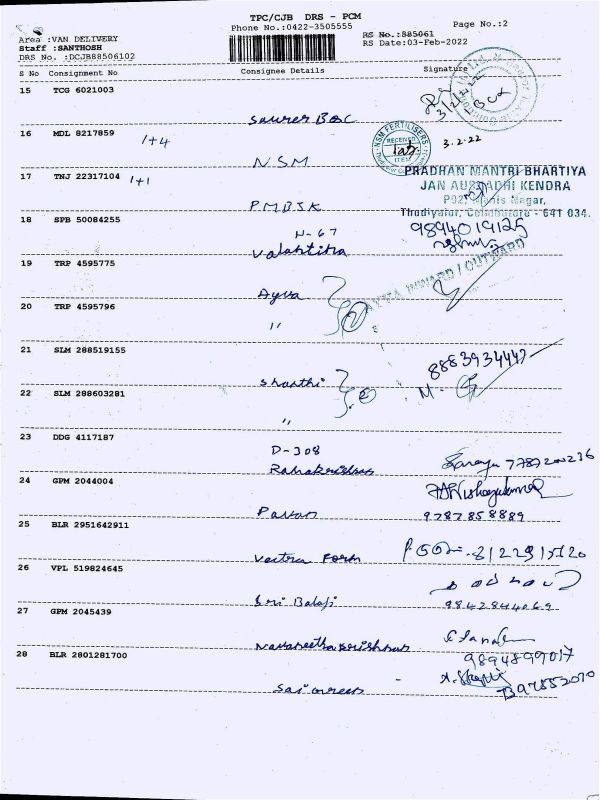 TPC/CJB DRS - PCM
Phone No.:0422-3505555
Page No.:2
Area :VAN DELIVERY
Staff :SANTHOSH
DRS No. :DCJB88506102
RS No.:885061
RS Date:03-Feb-2022
S No Consignment No Consignee Details Signature
15 TCG 6021003
3/2/22
Saurer Bosc
16 MDL 8217859 1+4
NSM FERTILISERS
RECEIVED
ITEM
3.2.22
NSM
17 TNJ 22317104 1+1
PRADHAN MANTRI BHARTIYA
JAN AUSHADHI KENDRA
Nagar,
Coimbatore - 641 034.
PMBJK
18 SPB 50084255
N-67
9894019125
19 TRP 4595775
INWARD / OUTWARD
Ayva
20 TRP 4595796
"
21 SLM 288519155
8883934447
Shanthi
M.
22 SLM 288603281
"
23 DDG 4117187
D-308
Ramakrishna
24 GPM 2044004
Pavan
9787858889
25 BLR 2951642911
26 VPL 519824645
Sri Balaji
9842844069
27 GPM 2045439
Navaneethakrishnan
9894899017
28 BLR 2801281700